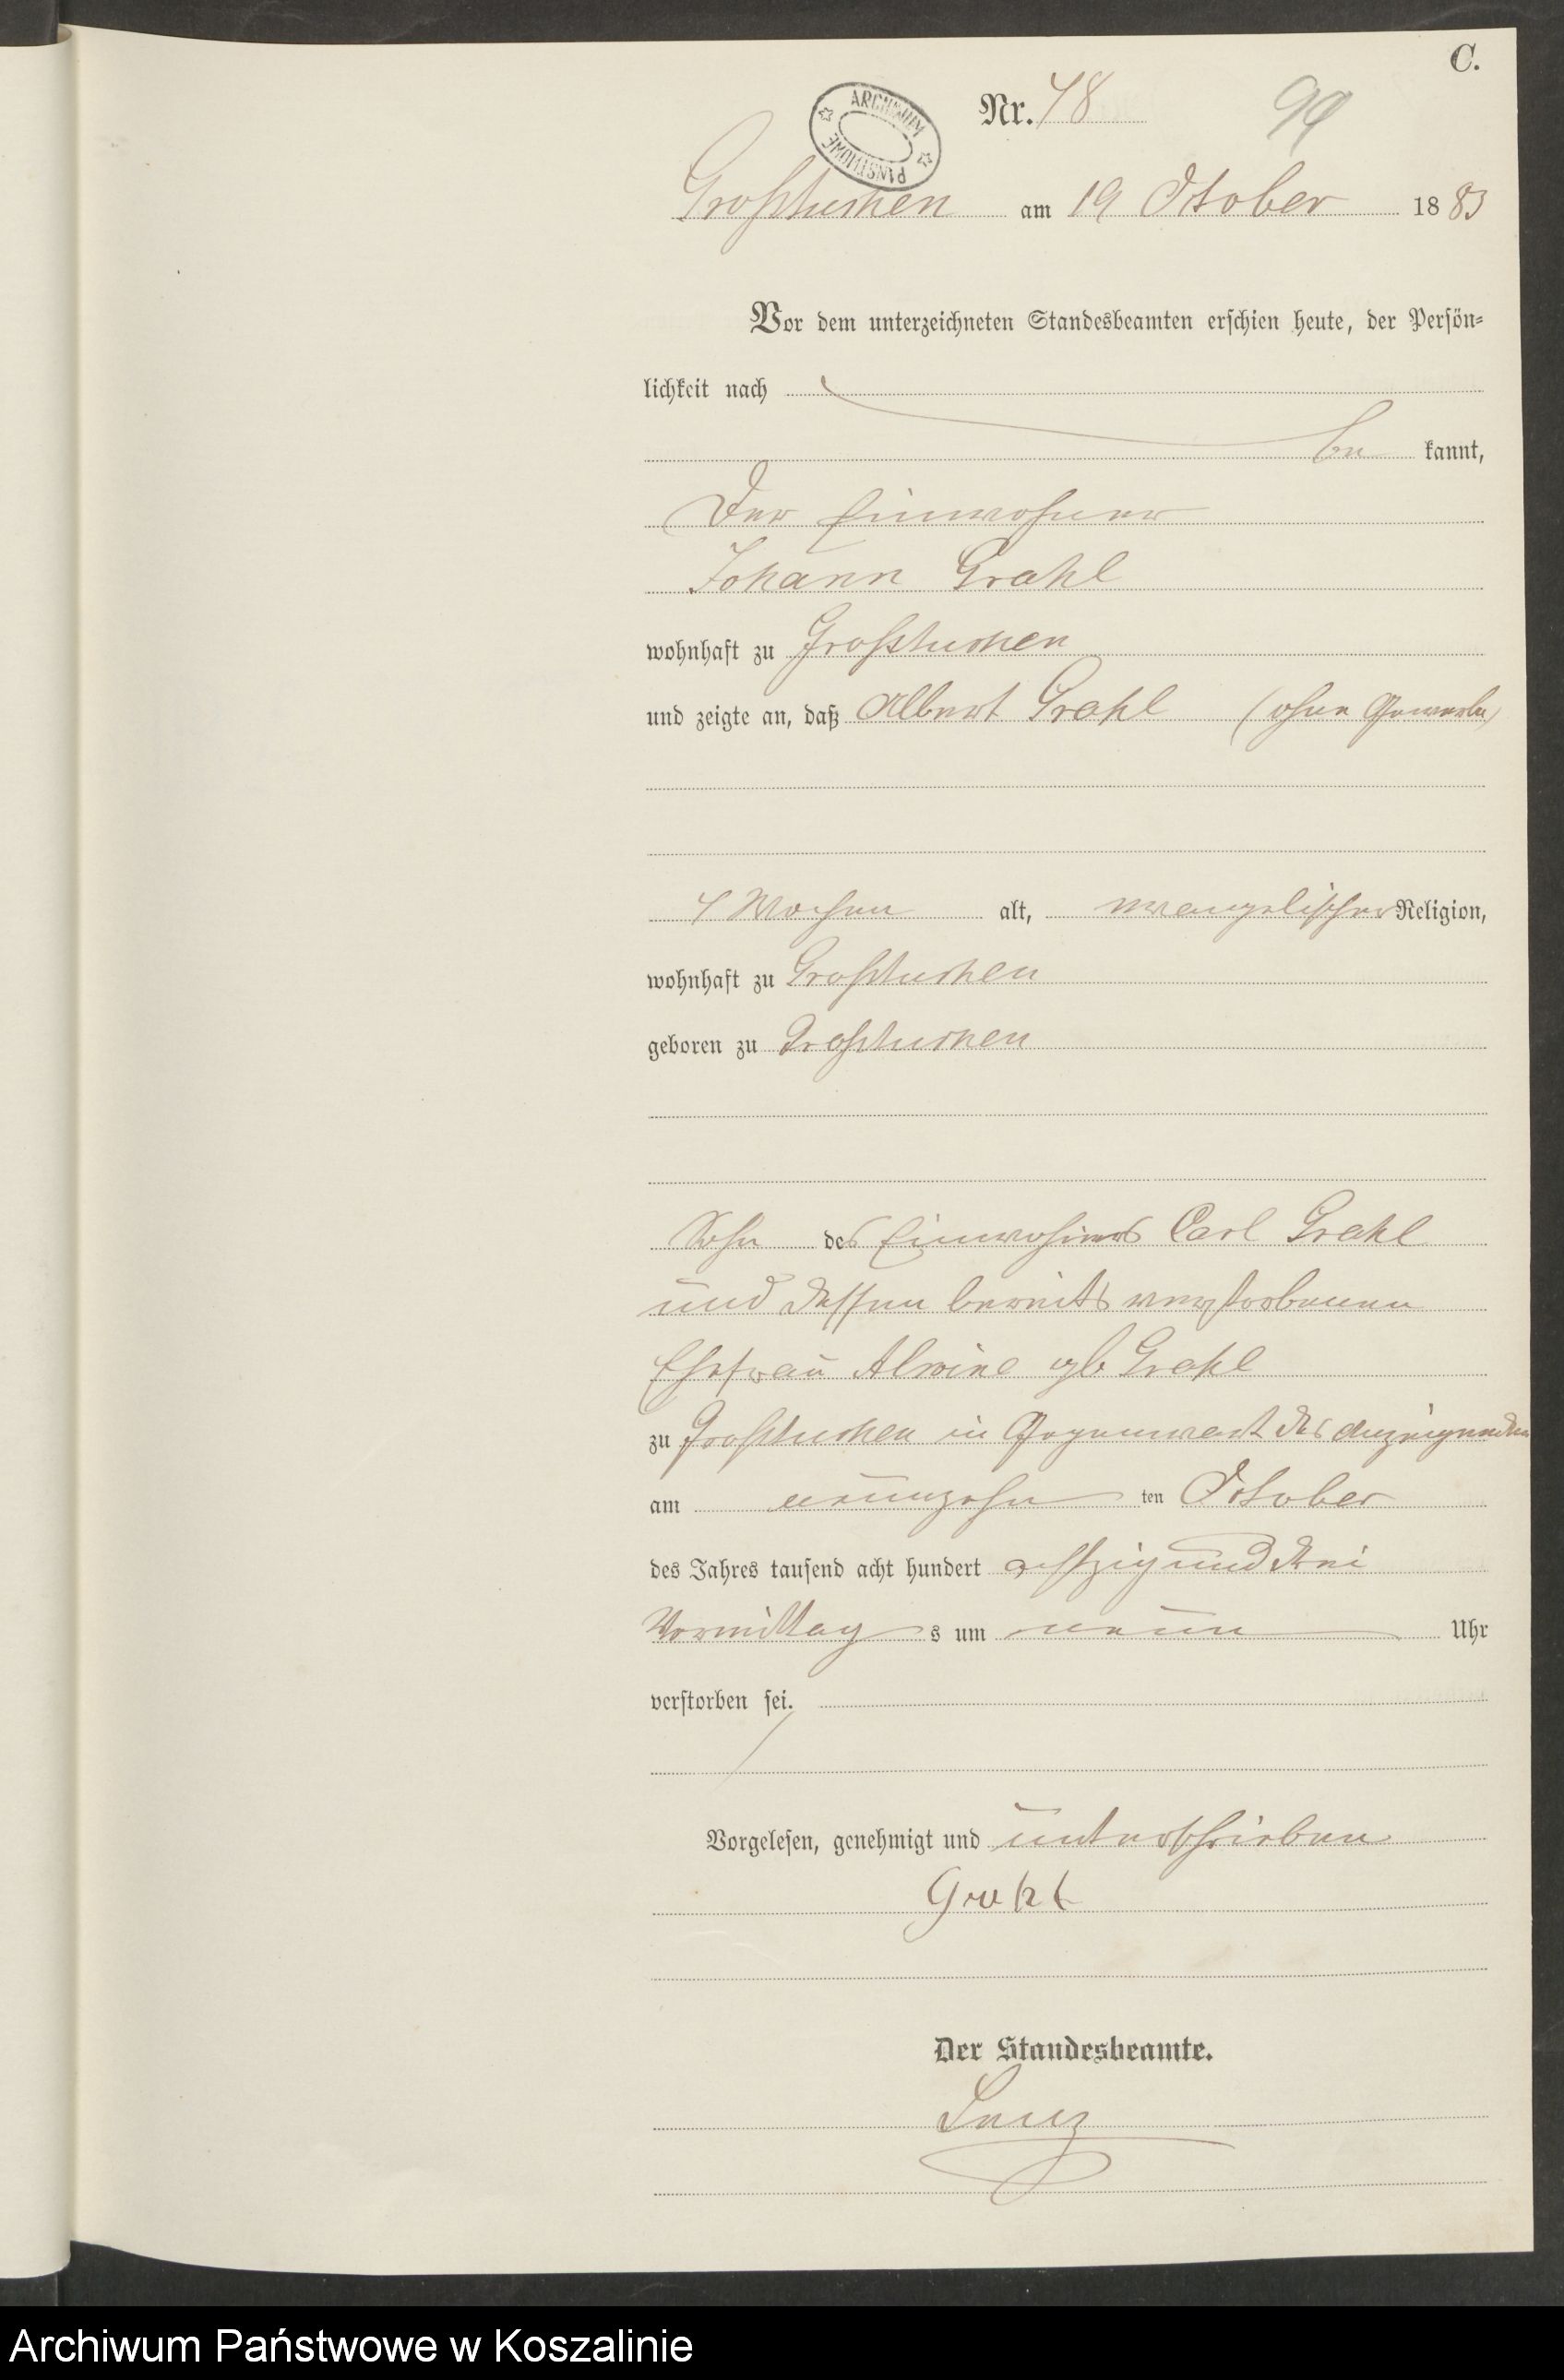 C.
Nr. 48
99
ARCHIWUM PAŃSTWOWE
Großtuchen am 19 October 1883
Vor dem unterzeichneten Standesbeamten erschien heute, der Persön-
lichkeit nach
be kannt,
Der Einwohner
Johann Grahl
wohnhaft zu Großtuchen
und zeigte an, daß Albert Grahl (ohne Gewerbe)
4 Wochen alt, evangelischer Religion,
wohnhaft zu Großtuchen
geboren zu Großtuchen
Sohn des Einwohners Carl Grahl
und dessen bereits verstorbenen
Ehefrau Alwine geb Grahl
zu Großtuchen in Gegenwart des Anzeigenden
am neunzehn ten October
des Jahres tausend acht hundert achtzig und drei
Vormittag s um neun Uhr
verstorben sei.
Vorgelesen, genehmigt und unterschrieben
Grahl
Der Standesbeamte.
Lenz
Archiwum Państwowe w Koszalinie